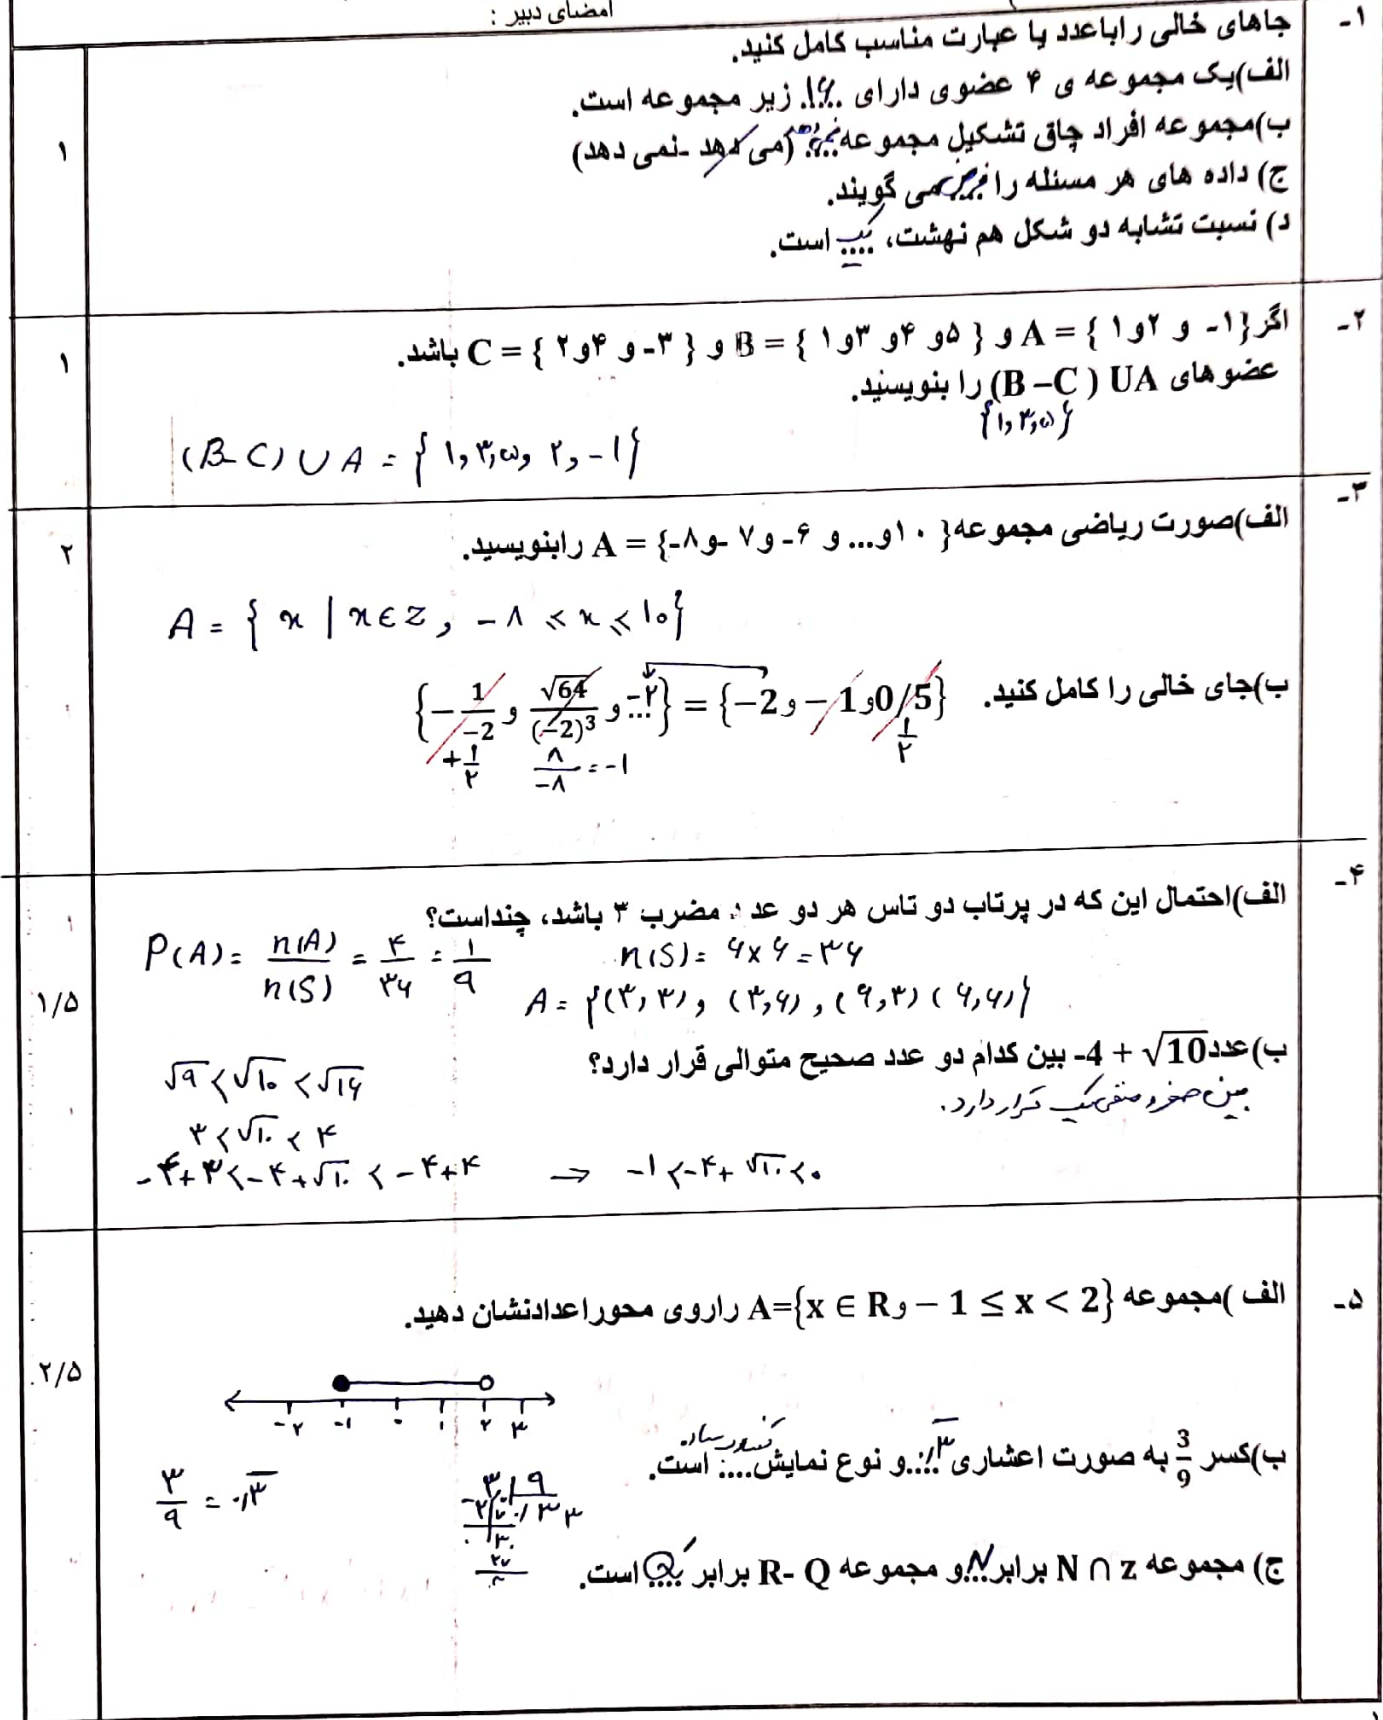 امضای دبیر :
۱- جاهای خالی را باعدد یا عبارت مناسب کامل کنید.
الف)یک مجموعه ی ۴ عضوی دارای ۱۶ زیر مجموعه است.
ب)مجموعه افراد چاق تشکیل مجموعه نمی دهد (می دهد -نمی دهد)
۱
ج) داده های هر مسئله را فرض می گویند.
د) نسبت تشابه دو شکل هم نهشت، یک است.
۲- اگر A = { ۱و ۲ و ۱- } و B = { ۱و ۳و ۴ و ۵ } و C = { ۲و۴ و ۳- } باشد.
۱
عضوهای (B – C) UA را بنویسید.
{۱,۳,۵}
(B-C) ∪ A = { ۱,۳,۵, ۲, -۱}
۳- الف)صورت ریاضی مجموعه A = {-۸و -۷ و -۶ و ...و ۱۰ } رابنویسید.
۲
A = { x | x ∈ Z , -۸ ⩽ x ⩽ ۱۰}
ب)جای خالی را کامل کنید. {−1/−2 و √64/(−2)³ و -۲...} = {−2 و −1 و 0/5}
+۱/۲ ۸/-۸ = -۱ ۱/۲
۴- الف)احتمال این که در پرتاب دو تاس هر دو عدد مضرب ۳ باشد، چنداست؟
P(A) = n(A)/n(S) = ۴/۳۶ = ۱/۹ n(S) = ۶×۶ = ۳۶
۱/۵
A = {(۳,۳), (۳,۶), (۶,۳) (۶,۶)}
ب)عدد -4 + √10 بین کدام دو عدد صحیح متوالی قرار دارد؟
√۹ < √۱۰ < √۱۶
بین صفر و منفی یک قرار دارد.
۳ < √۱۰ < ۴
-۴+۳ < -۴+√۱۰ < -۴+۴ ⇒ -۱ < -۴+√۱۰ < ۰
۵- الف )مجموعه A={x ∈ R و − 1 ≤ x < 2} راروی محوراعدادنشان دهید.
۲/۵
-۲ -۱ ۰ ۱ ۲ ۳
ب)کسر 3/9 به صورت اعشاری ۰/۳̅ و نوع نمایش.... است.
۳/۹ = ۰/۳̅
ج) مجموعه N ∩ z برابر N و مجموعه R- Q برابر Q′ است.